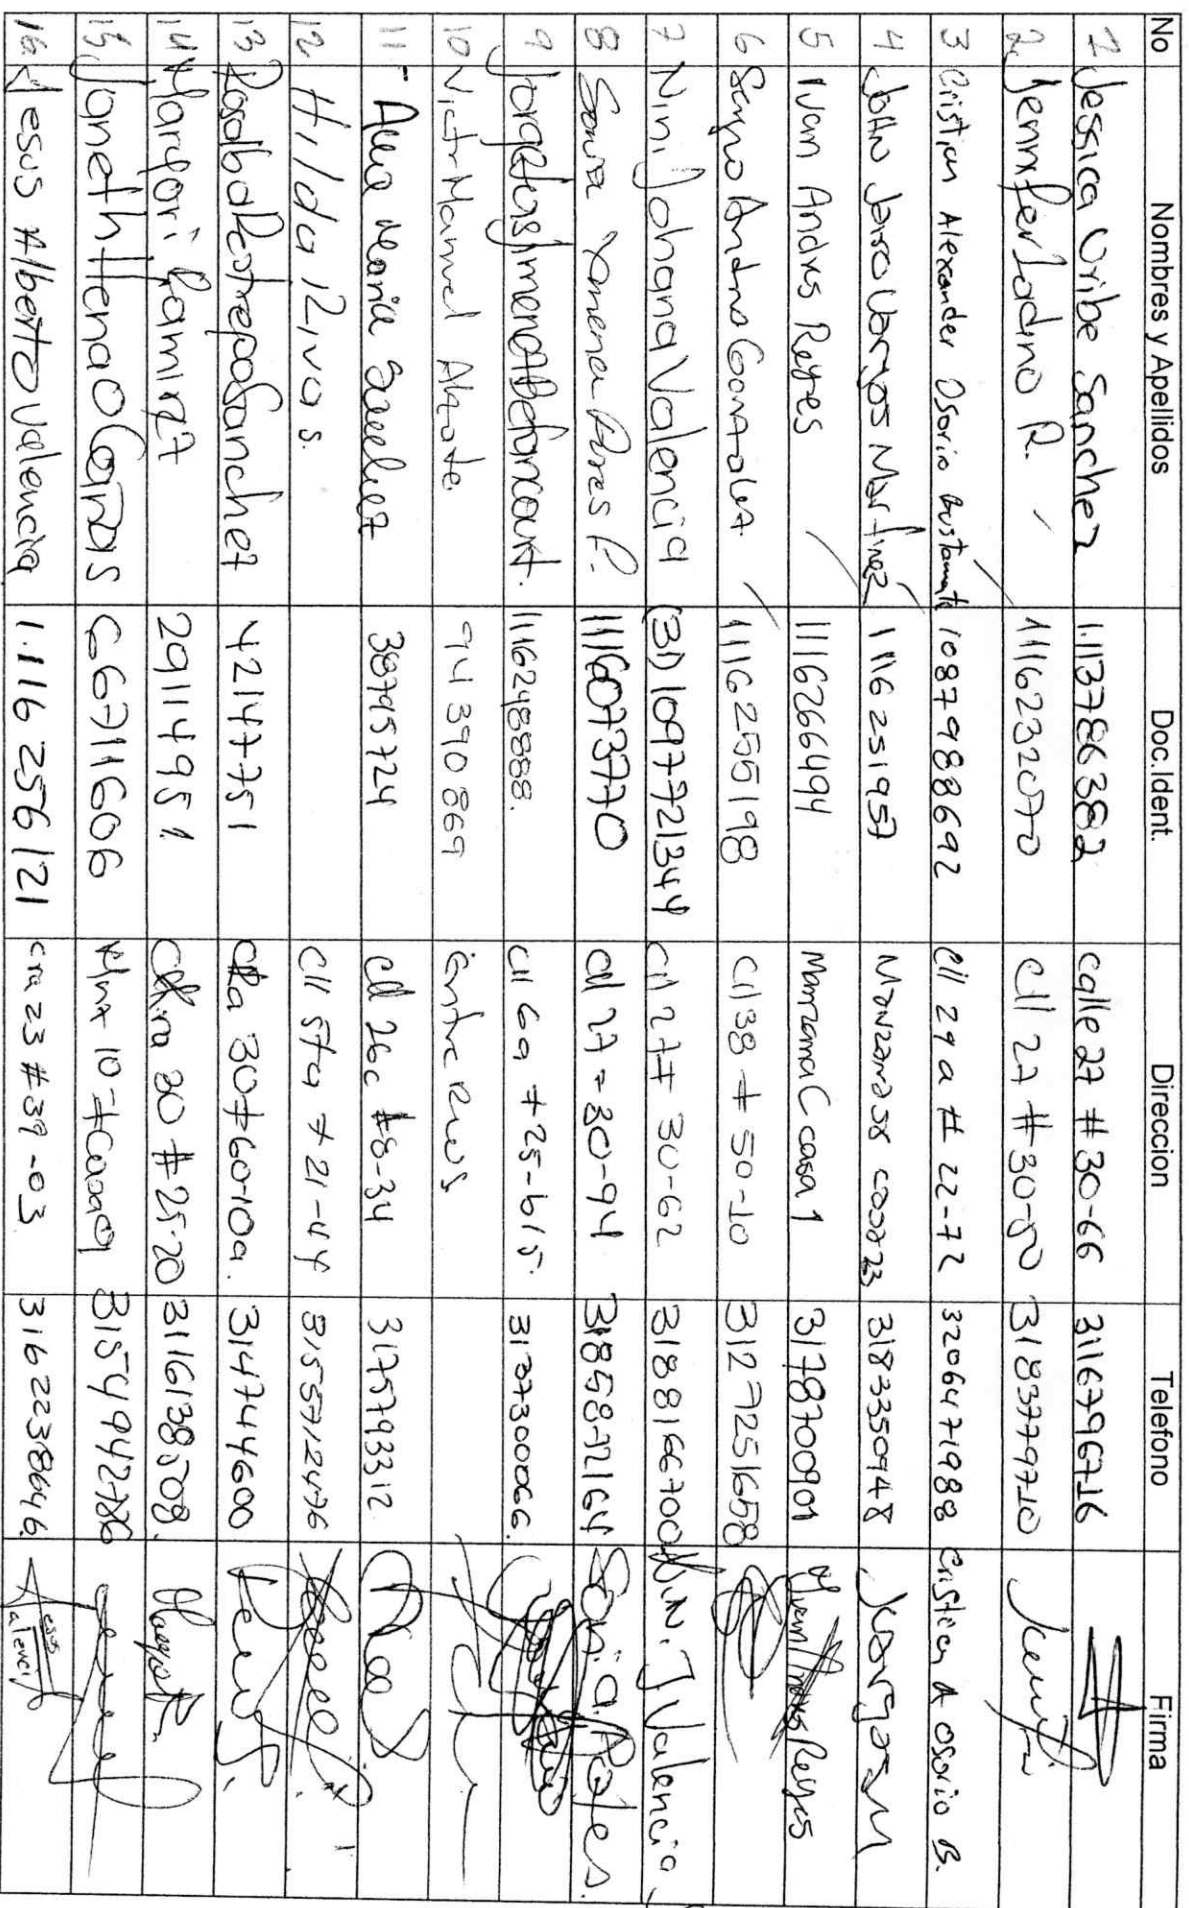 No Nombres y Apellidos Doc.Ident. Direccion Telefono Firma
1 Jessica Uribe Sanchez 1.113786382 calle 27 #30-66 3116796716
2. Jennifer Ladino R. 1116232070 Cll 27 #30-50 3183779710
3 Cristian Alexander Osorio Bustamante 1087988692 Cll 29 a # 22-72 3206471988 Cristian A Osorio B.
4 John Jairo Vargas Martinez 1116251957 3183350948
5 Ivan Andres Reyes 1116266494 Manzana C casa 1 3178700909 Ivan Andres Reyes
6 Andres Gonzalez 1116255198 Cll 38 # 50-10 3127251658
7 Nini Johana Valencia 1097721344 Cll 27 # 30-62 3188166700 Nini J Valencia
8 Sonia Ximena Potes P. 1116073770 Cll 27 = 30-94 3185872164 Sonia Potes.
9 1116248888. Cll 69 # 25-615. 3173730006.
10 Victor Manuel Alzate. 94390869 Entre Rios
11- Ana Maria Sanchez 38795724 Cll 26c #8-34 3175793312 Ana S
12 Hilda Rivas. Cll 5ta # 21-44 3155712476
13 Rosalba Restrepo Sanchez 42147751 Cra 30 #60-10a. 3147444600
14 Maryori Ramirez 29114951 Cra 30 #25-20 3116138708.
15. Janeth Henao 66711606 Mnz 10 # Casa 9 3154942786
16. Jesus Alberto Valencia 1.116 256 121 cra 23 #39-03 3162238646. Jesus Valencia